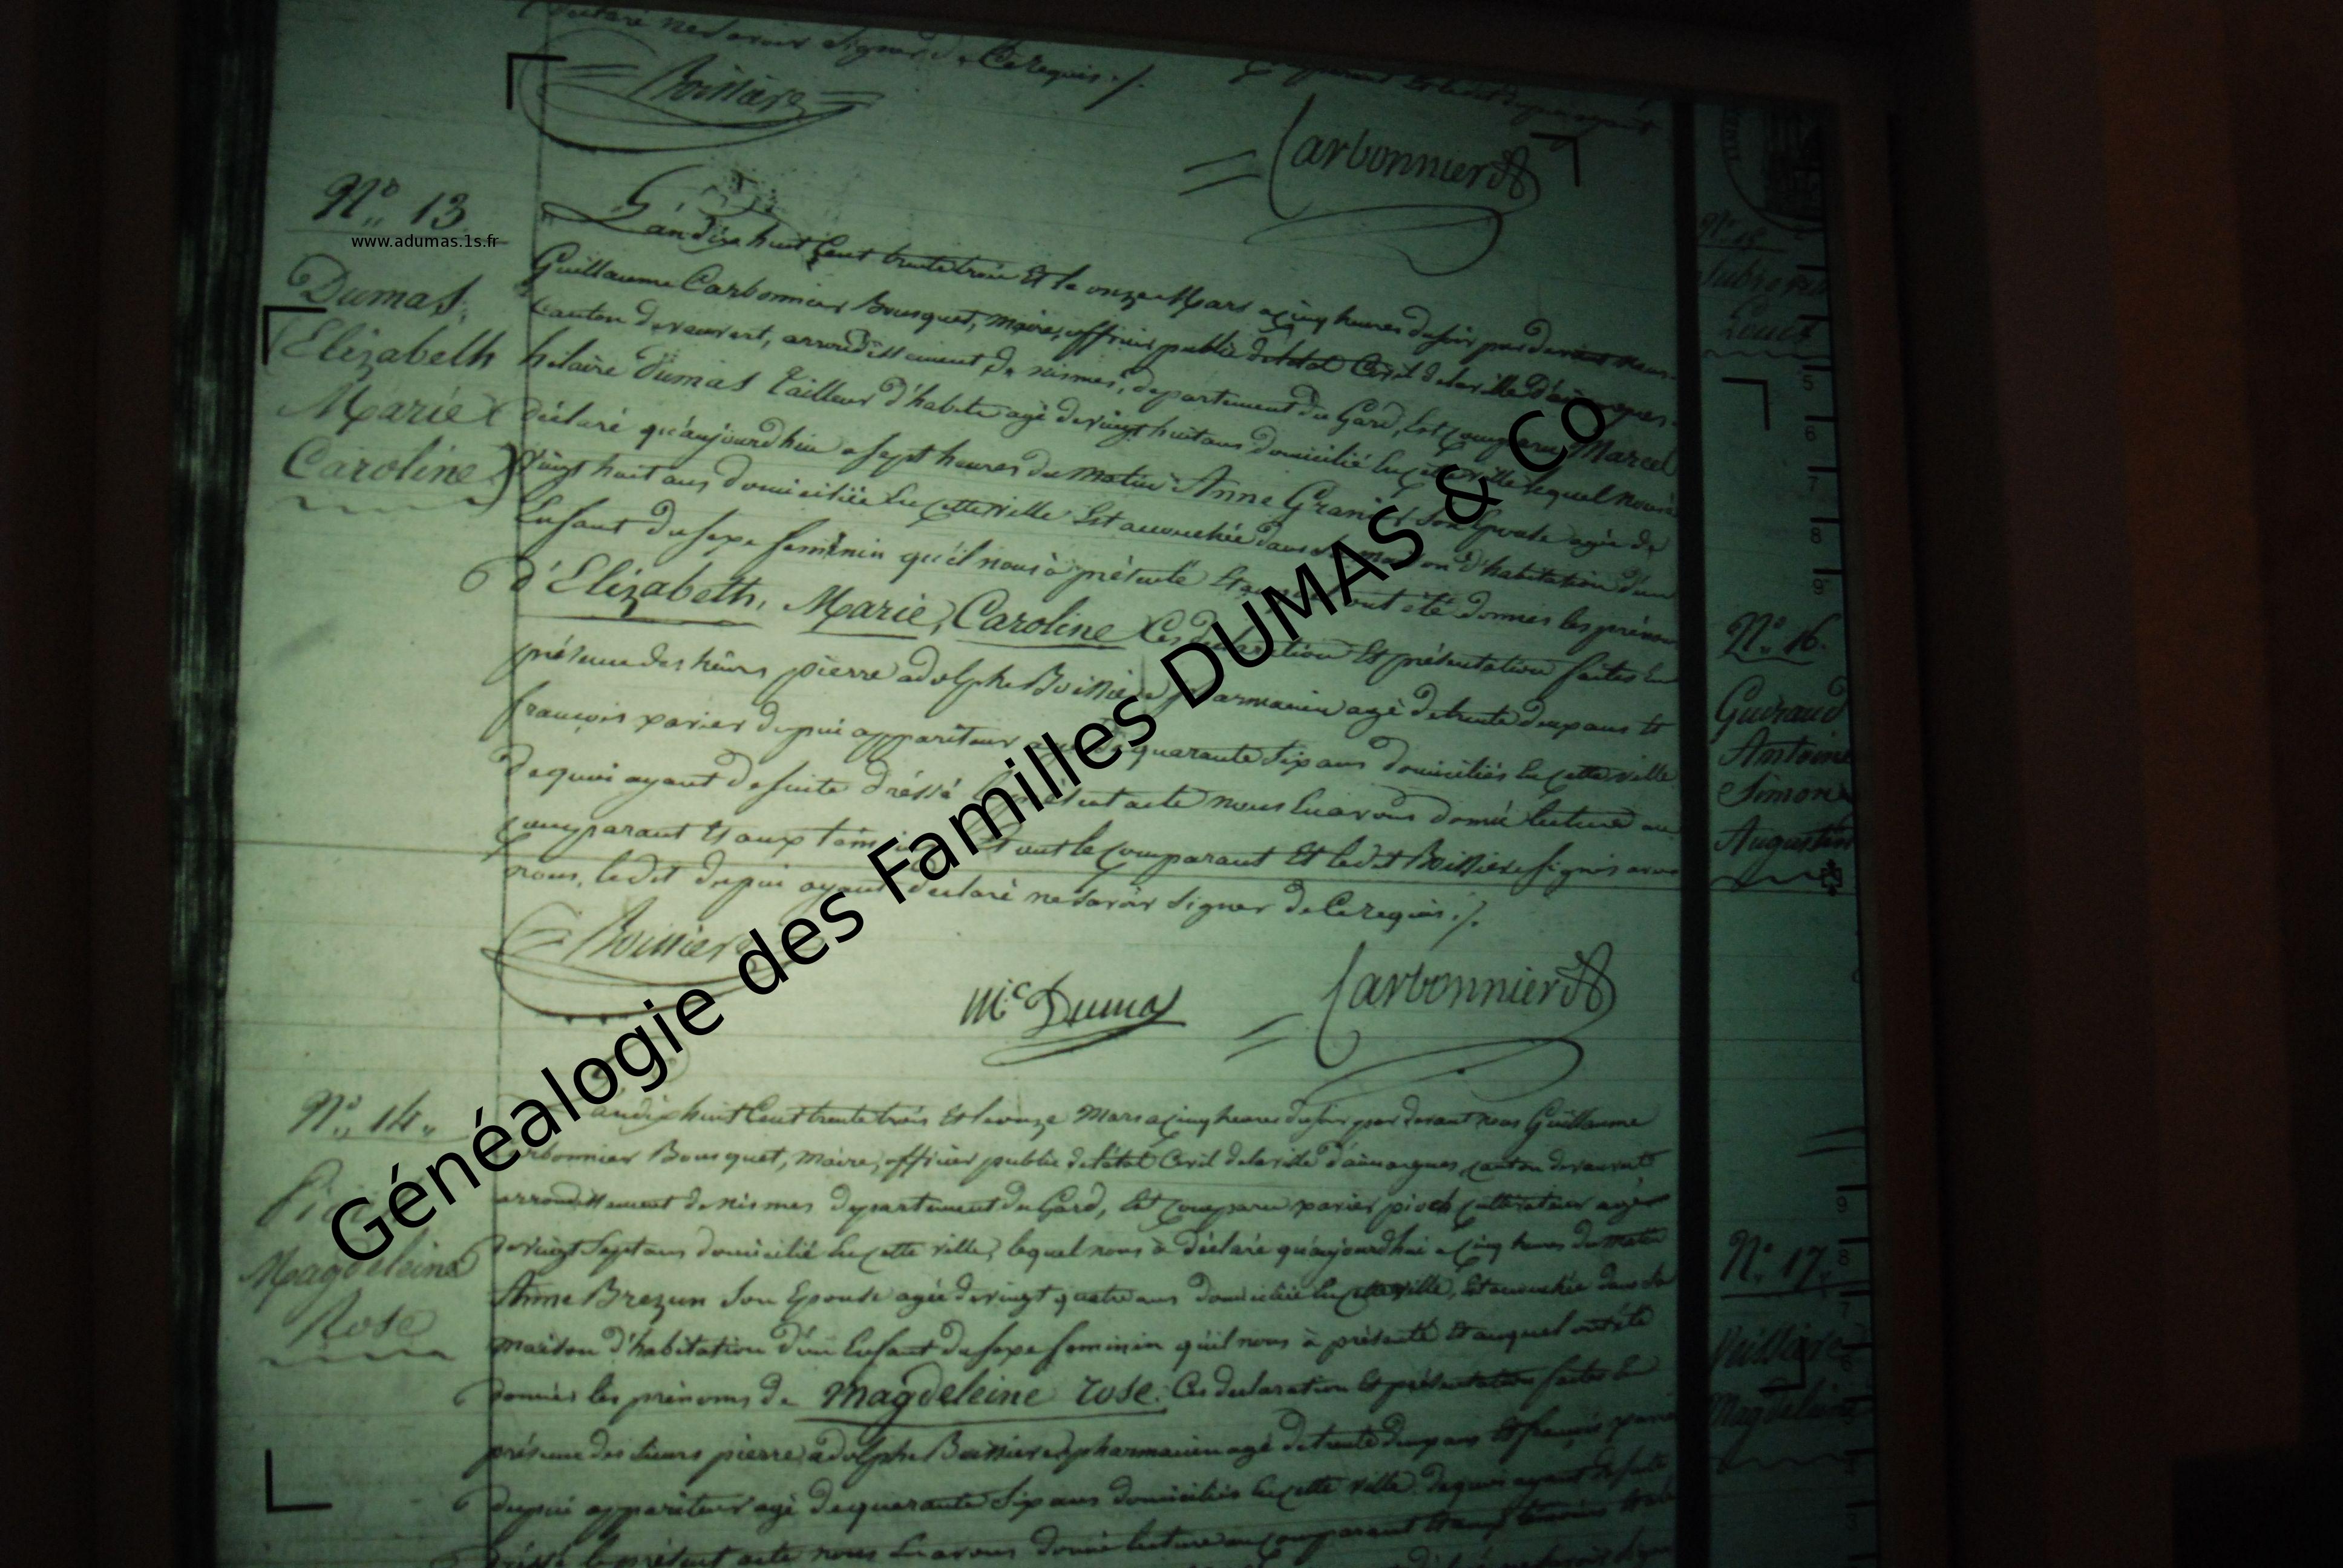 déclaré ne savoir signer de Ce requis ./.
Boissiere
Carbonnier
N.° 13
www.adumas.1s.fr
Dumas,
Elizabeth
Marie
Caroline
L'an dix huit Cent trente trois Et le onze Mars a cinq heures du soir par devant nous
Guillaume Carbonnier Bousquet, maire, officier public de l'état Civil de la ville D'aimargues
canton de vauvert, arrondissement de nismes, departement du Gard, Est comparu Marcel
hilaire Dumas Tailleur d'habits agé de vingt huit ans domicilié En cette ville lequel nous à
déclaré qu'aujourdhui a sept heures du matin Anne Granier son Epouse agée de
vingt huit ans domiciliée En cette ville Est accouchée dans sa maison d'habitation d'un
Enfant du sexe feminin qu'il nous à présenté Et auquel ont été donnés les prénoms
d'Elizabeth, Marie, Caroline Ces declaration Et présentation faites En
présence des sieurs pierre adolphe Boissiere pharmacien agé de trente deux ans Et
françois xavier dupui appariteur agé de quarante six ans domiciliés En cette ville
de quoi ayant de suite dréssé le présent acte nous En avons donné lecture au
comparant Et aux témoins Et ont le comparant Et ledit Boissiere signés avec
nous, ledit dupui ayant déclaré ne savoir signer de Ce requis ./.
Boissiere
Mc Dumas
Carbonnier
Généalogie des Familles DUMAS & Co
N.° 14
Magdeleine
Rose
L'an dix huit Cent trente trois Et le onze Mars a cinq heures du soir par devant nous Guillaume
Carbonnier Bousquet, Maire, officier public de l'état Civil de la ville d'aimargues canton de vauvert
arrondissement de nismes departement du Gard, Est comparu xavier pioch cultivateur agé
de vingt sept ans domicilié En cette ville, lequel nous à déclaré qu'aujourdhui a cinq heures du matin
Anne Brezun son Epouse agée de vingt quatre ans domiciliée En cette ville, Est accouchée dans sa
maison d'habitation d'un Enfant du sexe feminin qu'il nous à présenté Et auquel ont été
donnés les prénoms de Magdeleine rose. Ces declaration Et présentation faites En
présence des sieurs pierre adolphe Boissiere pharmacien agé de trente deux ans Et françois xavier
dupui appariteur agé de quarante six ans domiciliés En cette ville de quoi ayant de suite
dréssé le présent acte nous En avons donné lecture au comparant Et aux témoins
Louis
5
6
7
8
9
N.° 16.
Guiraud
Antoine
Simon
Augustin
9
8
N.° 17
7
Magdeleine